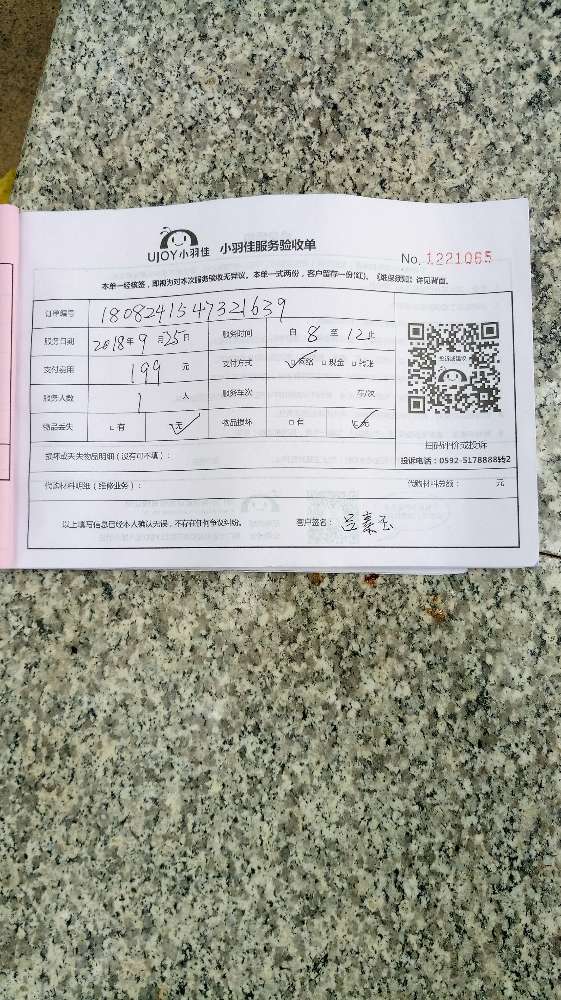 UJOY小羽佳 小羽佳服务验收单
No.1221065
本单一经核签,即视为对本次服务验收无异议。本单一式两份,客户留存一份(红)。《维保须知》详见背面。
订单编号 1808241547321639
服务日期 2018年9月25日 服务时间 自8至12止
支付费用 199元 支付方式 ☑网络 □现金 □转账
服务人数 1人 服务车次 车/次
物品丢失 □有 ☑无 物品损坏 □有 ☑无
投诉或建议
扫码评价或投诉
投诉电话:0592-5178888转2
损坏或丢失物品明细(没有可不填):
代购材料明细(维修业务): 代购材料总额: 元
以上填写信息已经本人确认无误,不存在任何争议纠纷。 客户签名:吕素玉